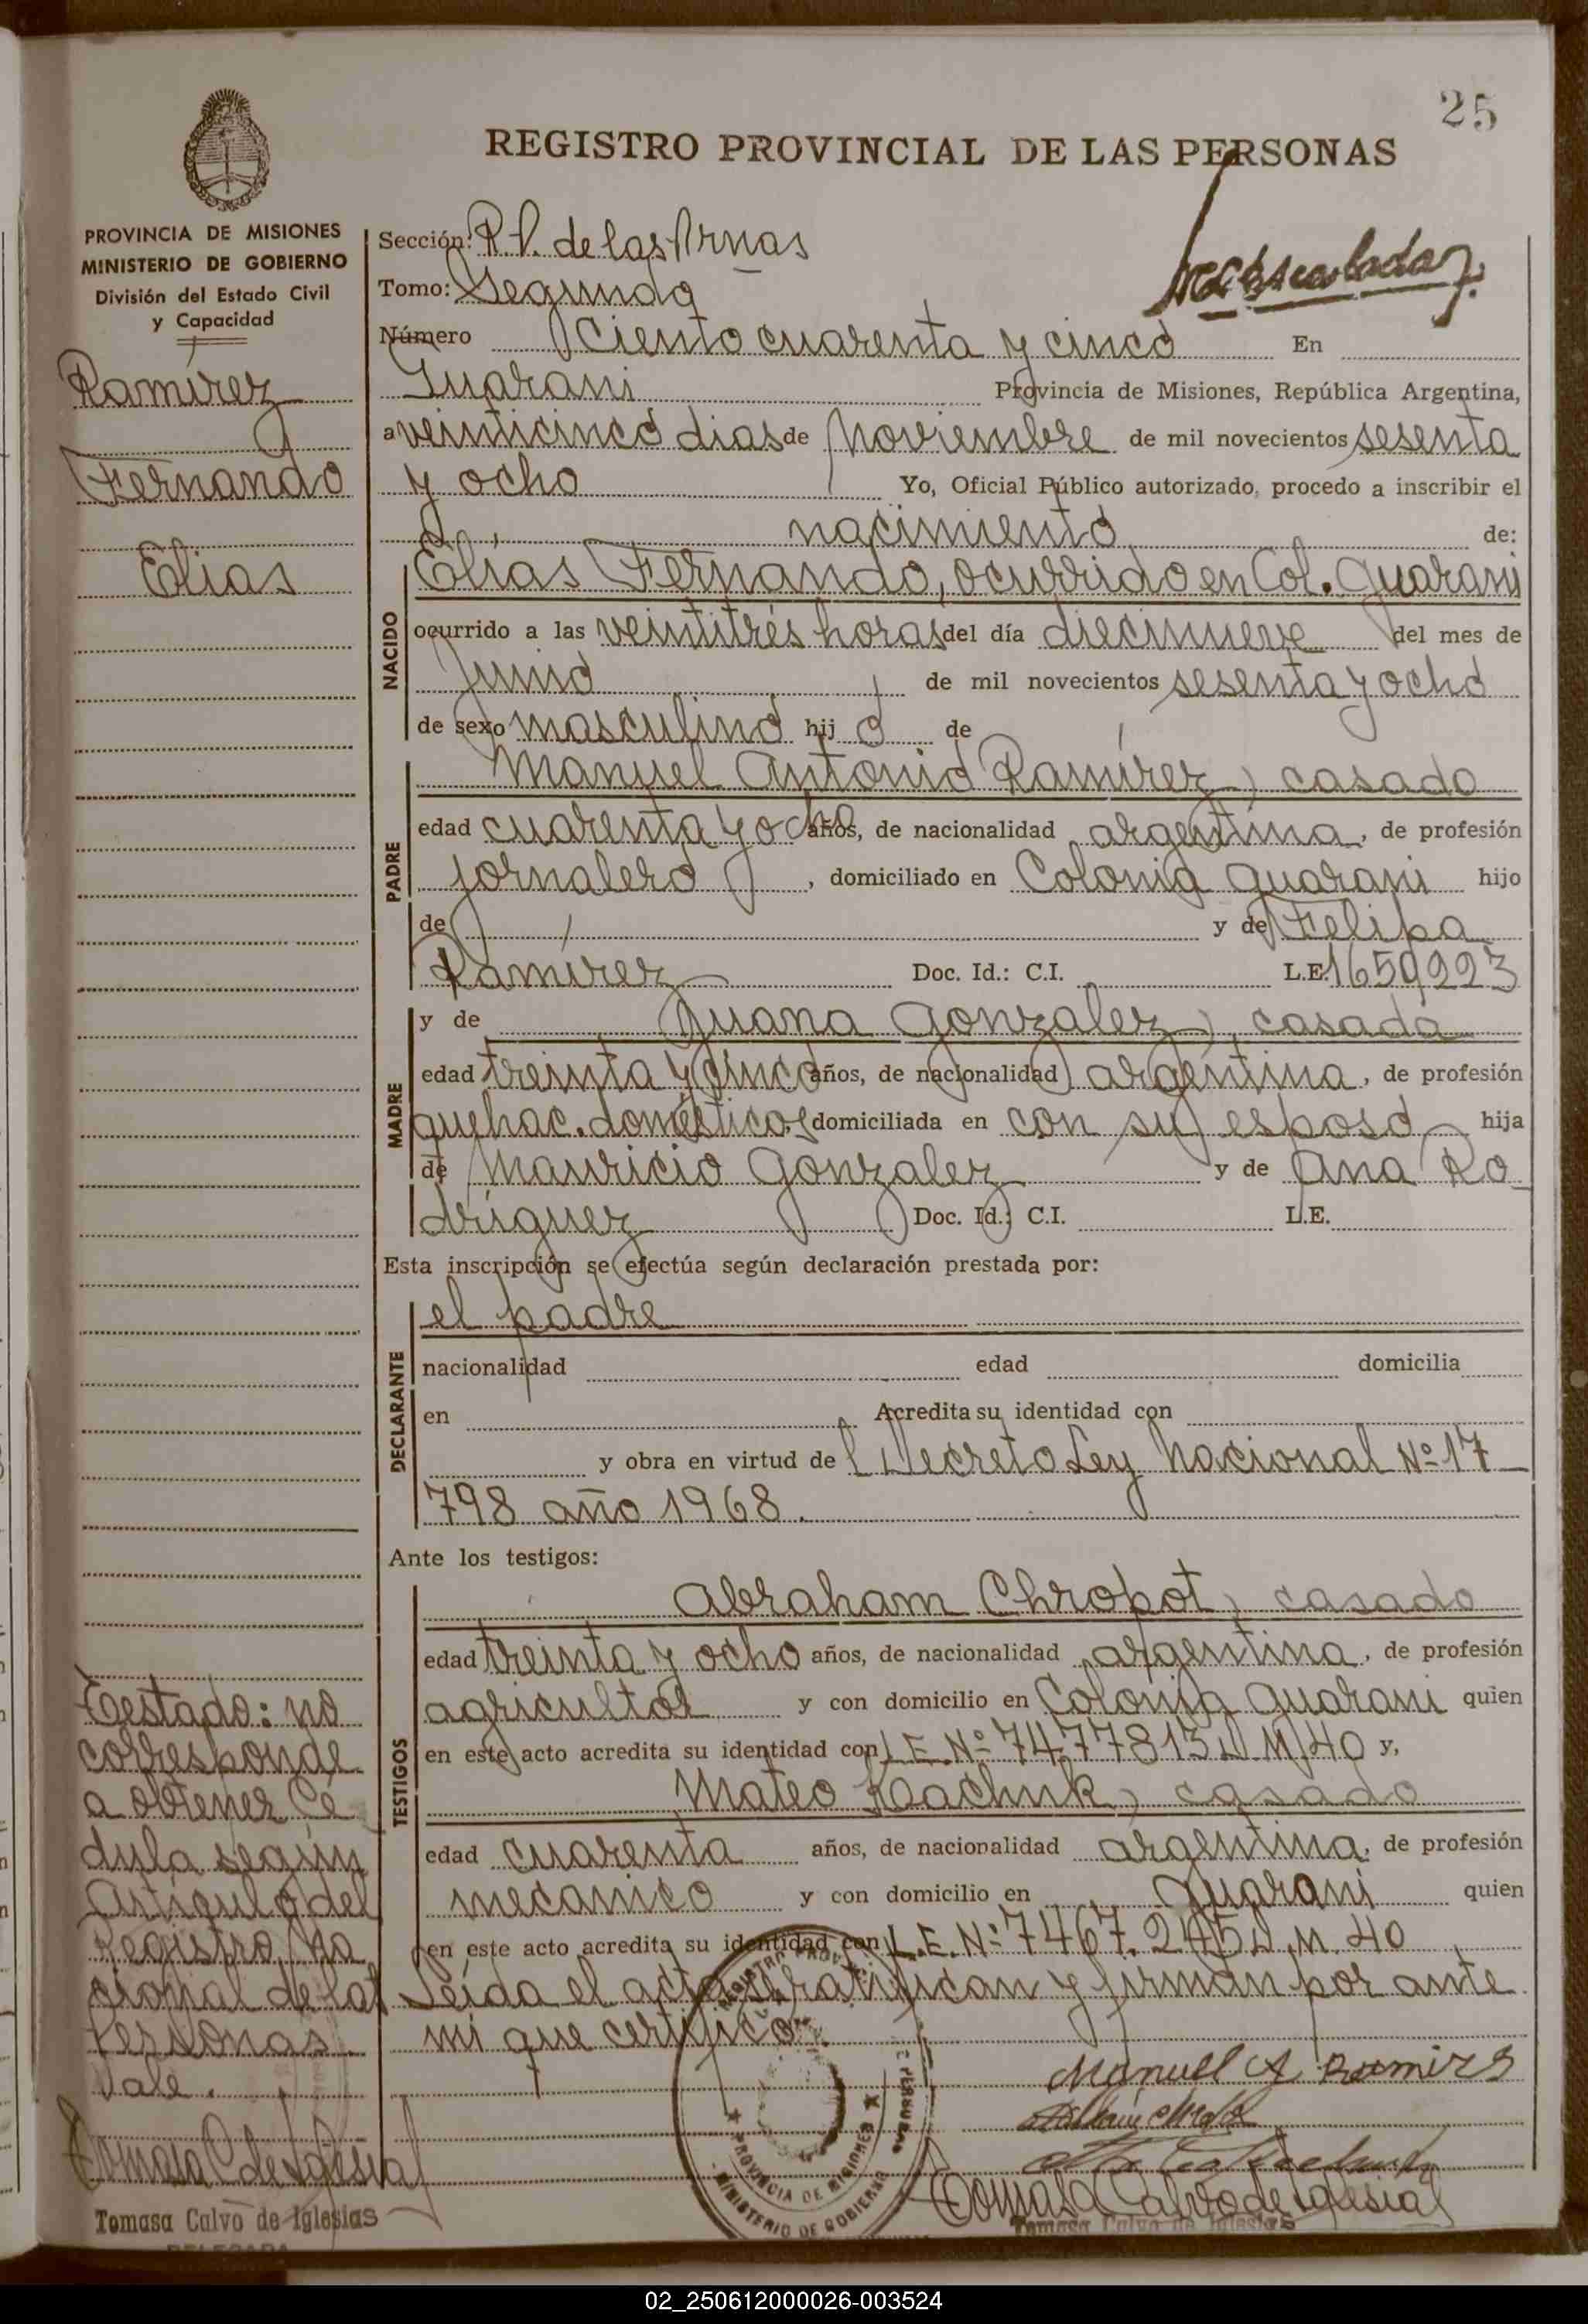 25
REGISTRO PROVINCIAL DE LAS PERSONAS
PROVINCIA DE MISIONES
MINISTERIO DE GOBIERNO
División del Estado Civil
y Capacidad
Ramírez
Fernando
Elías
Sección: R.P. de las Prnas
Tomo: Segundo
Número Ciento cuarenta y cinco En
Guaraní Provincia de Misiones, República Argentina,
a veinticinco dias de Noviembre de mil novecientos sesenta
y ocho Yo, Oficial Público autorizado, procedo a inscribir el
nacimiento de:
NACIDO
Elías Fernando, ocurrido en Col. Guaraní
ocurrido a las veintitrés horas del día diecinueve del mes de
Junio de mil novecientos sesenta y ocho
de sexo masculino hij o de
PADRE
Manuel Antonio Ramírez, casado
edad cuarenta y ocho años, de nacionalidad argentina, de profesión
jornalero, domiciliado en Colonia Guaraní hijo
de y de Felipa
Ramírez Doc. Id.: C.I. L.E. 1659223
MADRE
y de Juana Gonzalez, casada
edad treinta y cinco años, de nacionalidad argentina, de profesión
quehac. domésticos domiciliada en con su esposo hija
de Mauricio Gonzalez y de Ana Ro
dríguez Doc. Id.: C.I. L.E.
Esta inscripción se efectúa según declaración prestada por:
DECLARANTE
el padre
nacionalidad edad domicilia
en Acredita su identidad con
y obra en virtud de Decreto Ley Nacional Nº 17
798 año 1968.
Ante los testigos:
TESTIGOS
Abraham Chropot, casado
edad treinta y ocho años, de nacionalidad argentina, de profesión
agricultor y con domicilio en Colonia Guaraní quien
en este acto acredita su identidad con L.E. Nº 7477813 D.M. 40 y,
Mateo Kachuk, casado
edad cuarenta años, de nacionalidad argentina, de profesión
mecanico y con domicilio en Guaraní quien
en este acto acredita su identidad con L.E. Nº 7467.245 D.M. 40
Leída el acta ratifican y firman por ante
mi que certifico.
Testado: no
corresponde
a obtener Cé
dula según
Artículo del
Registro Na
cional de las
Personas
Vale.
Manuel A Ramires
Tomasa C de Iglesias
Tomasa Calvo de Iglesias
Tomasa Calvo de Iglesias
Tomasa Calvo de Iglesias
DELEGADA
REGISTRO PROV. PERSONAS
PROVINCIA DE MISIONES
MINISTERIO DE GOBIERNO
02_250612000026-003524